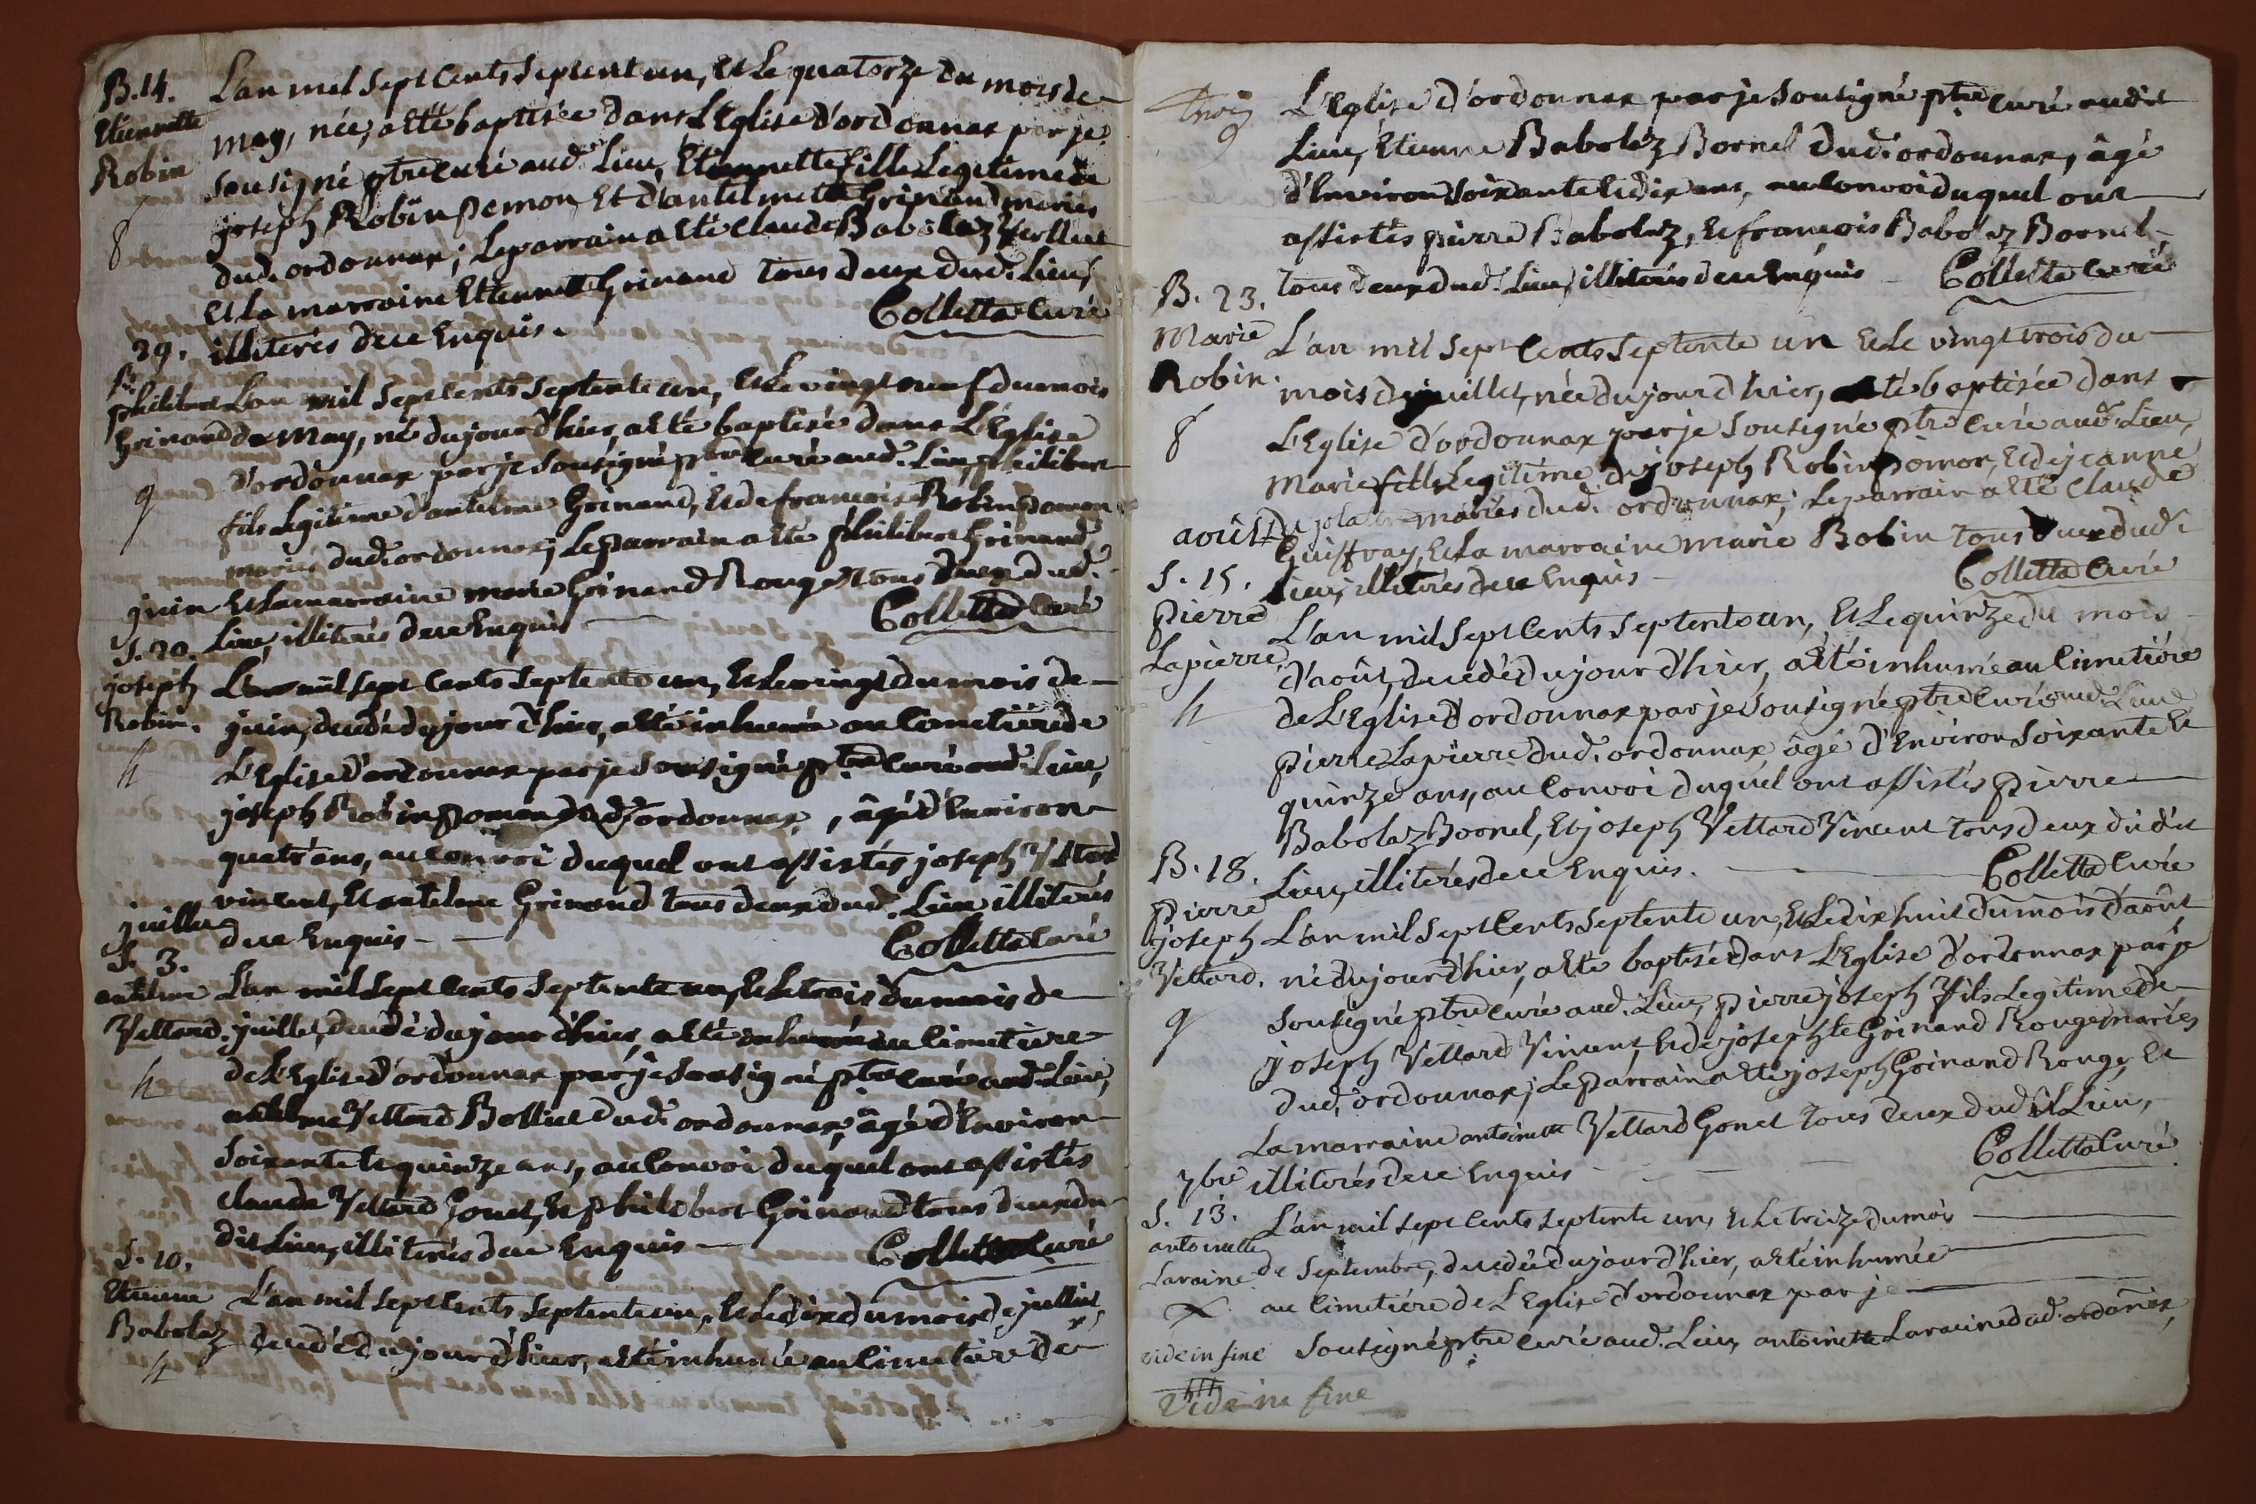 B. 14.
Etiennette
Robin
8
L'an mil sept cents septent un, et le quatorze du mois de
may, née, a été baptisée dans L'Eglise d'ordonnax par je
sousigné ptre curé aud. Lieu, Etiennette fille Legitime de
joseph Robin pomon Et d'antelmette Grinand mariés
dud. ordonnax; Le parrain a été Claude Babolaz
Et La marraine Etiennette Grinand tous deux dud. Lieu,
illiterés de ce Enquis. Colletta Curé
29.
philibert
Grinand
9
L'an mil sept cents septente un, et Le vingt neuf du mois
de May, né du jour d'hier, a été baptisé dans L'Eglise
d'ordonnax par je sousigné ptre curé aud. Lieu, philibert
fils Legitime d'antelme Grinand, et de françoise Robin pomon
mariés dud. ordonnax; Le parrain a été philibert Grinand
Et La marraine marie Grinand Rouge tous deux dud.
Lieu, illiterés de ce Enquis Colletta Curé
juin
S. 20.
joseph
Robin.
h
L'an mil sept cents septente un, et Le vingt du mois de
juin, decedé du jour d'hier, a été inhumé au cimetière de
L'Eglise d'ordonnax par je sousigné ptre curé aud. Lieu,
joseph Robin pomon dud. ordonnax, âgé d'Environ
quatr'ans, au convoi duquel ont assistés joseph Vettard
vincent, Et antelme Grinand tous deux dud. Lieu illiterés
de ce Enquis - Colletta Curé
juillet
S. 3.
antelme
Vettard.
h
L'an mil sept cents septente un, et Le trois du mois de
juillet, decedé du jour d'hier, a été inhumé au cimetière
de L'Eglise d'ordonnax par je sousigné ptre curé aud. Lieu,
antelme Vettard Bolliet dud. ordonnax, âgé d'Environ
soixante et quinze ans, au convoi duquel ont assistés
claude Vettard Gonet, Et philibert Grinand tous deux du
dit Lieu, illiterés de ce Enquis Colletta Curé
S. 10.
Etienne
Babolaz
h
L'an mil sept cents septente un, et Le dix du mois de juillet,
decedé du jour d'hier, a été inhumé au cimetière de
L'Eglise d'ordonnax par je sousigné ptre curé audit
Lieu, Etienne Babolaz Bornel dud. ordonnax, âgé
d'Environ soixante et dix ans, au convoi duquel ont
assistés pierre Babolaz, et françois Babolaz Bornel
tous deux dud. Lieu, illiterés de ce Enquis Colletta Curé
B. 23.
Marie
Robin.
8
L'an mil sept cents septente un et Le vingt trois du
mois de juillet, née du jour d'hier, a été baptisée dans
L'Eglise d'ordonnax par je sousigné ptre curé aud. Lieu,
Marie fille Legitime de joseph Robin pomon, et de jeanne
mariés dud. ordonnax; Le parrain a été Claude
Guiffray, Et La marraine marie Robin tous deux dud.
Lieu, illiterés de ce Enquis Colletta Curé
août
S. 15.
pierre
Lapierre.
h
L'an mil sept cents septente un, Et Le quinze du mois
d'août, decedé du jour d'hier, a été inhumé au cimetière
de L'Eglise d'ordonnax par je sousigné ptre curé aud. Lieu
pierre Lapierre dud. ordonnax âgé d'Environ soixante et
quinze ans, au convoi duquel ont assistés pierre
Babolaz Bornel, et joseph Vettard Vincent tous deux dudit
Lieu, illiterés de ce Enquis. Colletta Curé
B. 18.
pierre
joseph
Vettard.
9
L'an mil sept cents septente un, et Le dix huit du mois d'août
né du jour d'hier, a été baptisé dans L'Eglise d'ordonnax par je
sousigné ptre curé aud. Lieu, pierre joseph fils Legitime de
joseph Vettard Vincent, et de josephte Grinand Rouge mariés
dud. ordonnax; Le parrain a été joseph Grinand Rouge, Et
La marraine antoinette Vettard Gonet tous deux dudit Lieu,
illiterés de ce Enquis Colletta Curé
7bre
S. 13.
antoinette
Laraine
vide in fine
L'an mil sept cents septente un, et Le treize du mois
de septembre, decedée du jour d'hier, a été inhumée
au cimetière de L'Eglise d'ordonnax par je
sousigné ptre curé aud. Lieu, antoinette Laraine dud. ordonnax,
Vide in fine